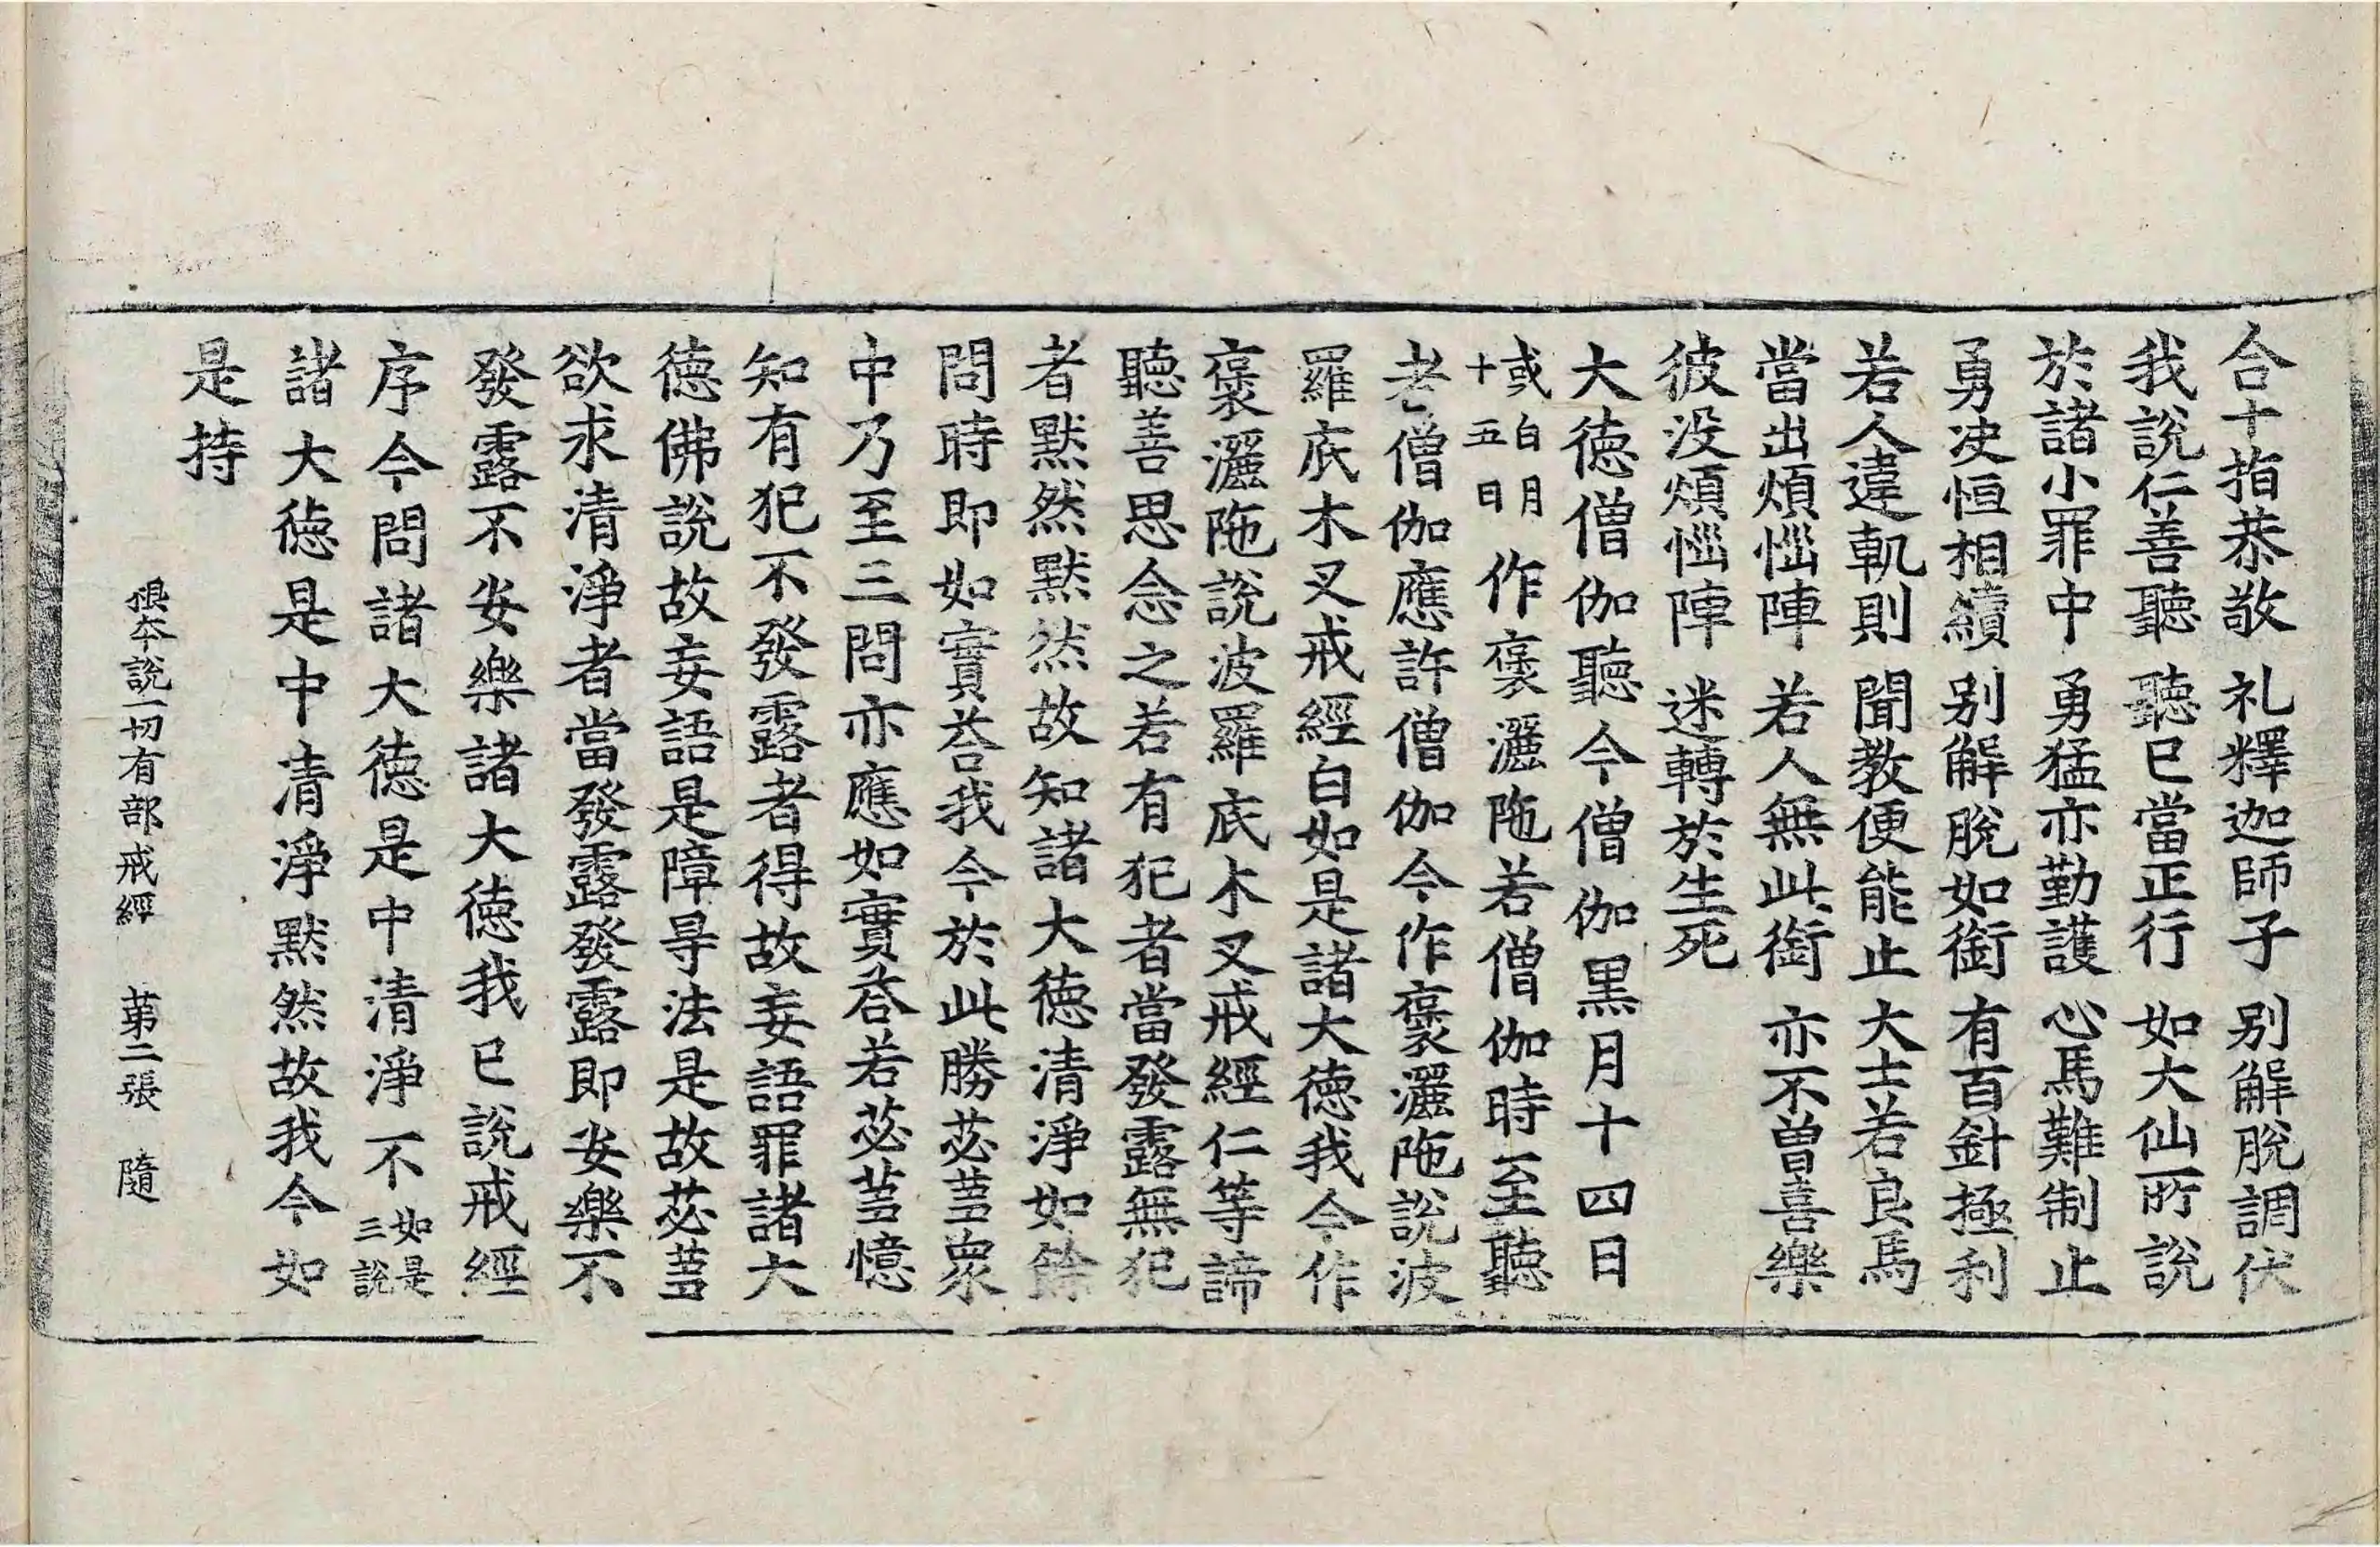 合十指恭敬 礼釋迦師子 別解脫調伏
我說仁善聽 聽已當正行 如大仙所說
於諸小罪中 勇猛亦勤護 心馬難制止
勇决恒相續 別解脫如銜 有百針極利
若人違軌則 聞教便能止 大士若良馬
當出煩惱陣 若人無此銜 亦不曾喜樂
彼没煩惱陣 迷轉於生死
大德僧伽聽今僧伽黑月十四日
或白月十五日作褒灑陁若僧伽時至聽
者僧伽應許僧伽今作褒灑陁說波
羅底木叉戒經白如是諸大德我今作
褒灑陁說波羅底木叉戒經仁等諦
聽善思念之若有犯者當發露無犯
者默然默然故知諸大德清淨如餘
問時即如實荅我今於此勝苾蒭衆
中乃至三問亦應如實荅若苾蒭憶
知有犯不發露者得故妄語罪諸大
德佛說故妄語是障㝵法是故苾蒭
欲求清淨者當發露發露即安樂不
發露不安樂諸大德我已說戒經
序今問諸大德是中清淨不如是三說
諸大德是中清淨默然故我今如
是持
根本說一切有部戒經 第二張 隨